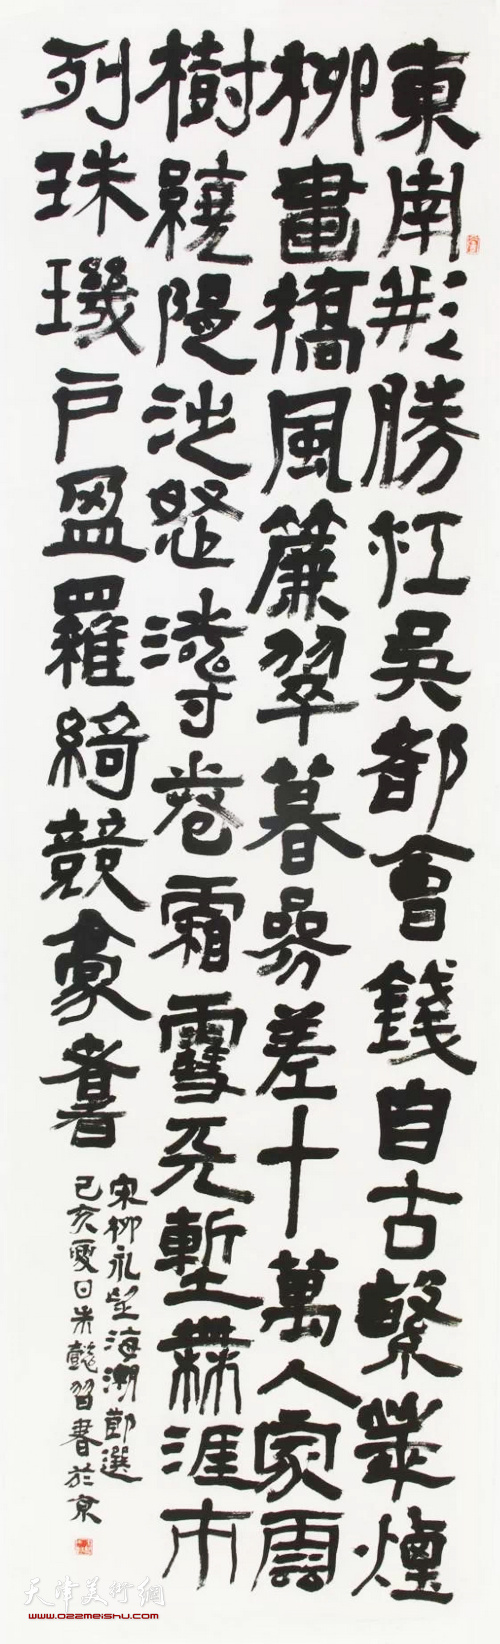 東南形勝江吳都會錢自古繁華煙
柳畫橋風簾翠暮參差十萬人家雲
樹繞隄沙怒濤卷霜雪天塹無涯市
列珠璣戶盈羅綺競豪奢
宋柳永望海潮節選
己亥夏日朱懿習書於京
天津美術網
www.022meishu.com